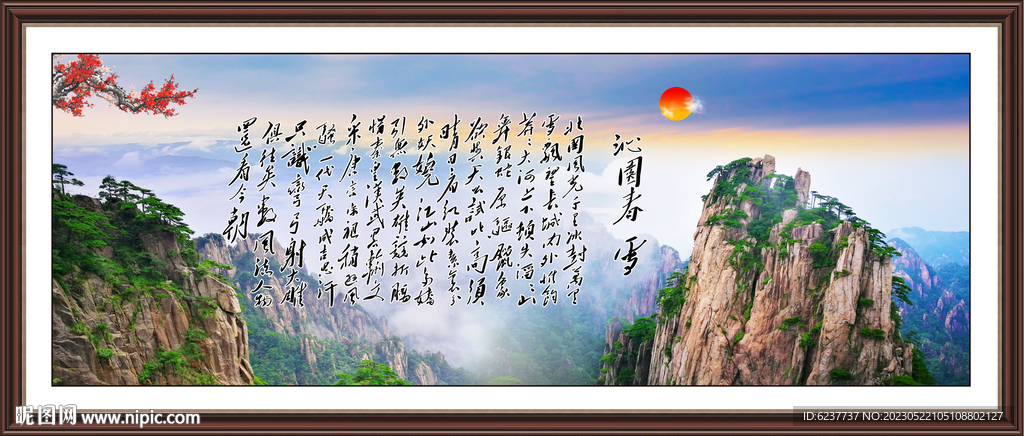 沁園春 雪
北國風光千里冰封萬里
雪飄望長城内外惟餘
莽莽大河上下頓失滔滔山
舞銀蛇原驅臘象
欲與天公試比高須
晴日看紅裝素裹分
外妖嬈 江山如此多嬌
引無數英雄競折腰
惜秦皇漢武略輸文
采唐宗宋祖稍遜風
騷一代天驕成吉思汗
只識彎弓射大雕
俱往矣數風流人物
還看今朝
昵图网 www.nipic.com
ID:6237737 NO:20230522105108802127